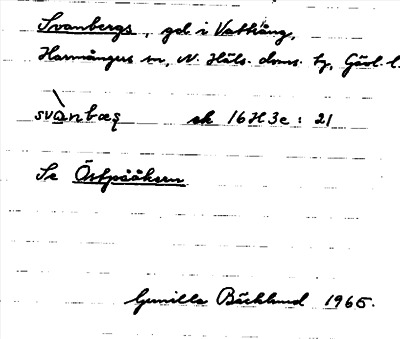 Svanbergs, gd i Vattrång,
Harmångers sn, N. Häls. doms. hg, Gävl. l.
svanbæʂ ek 16H3e : 21
Se Östpååkern
Gunilla Bäcklund 1965.